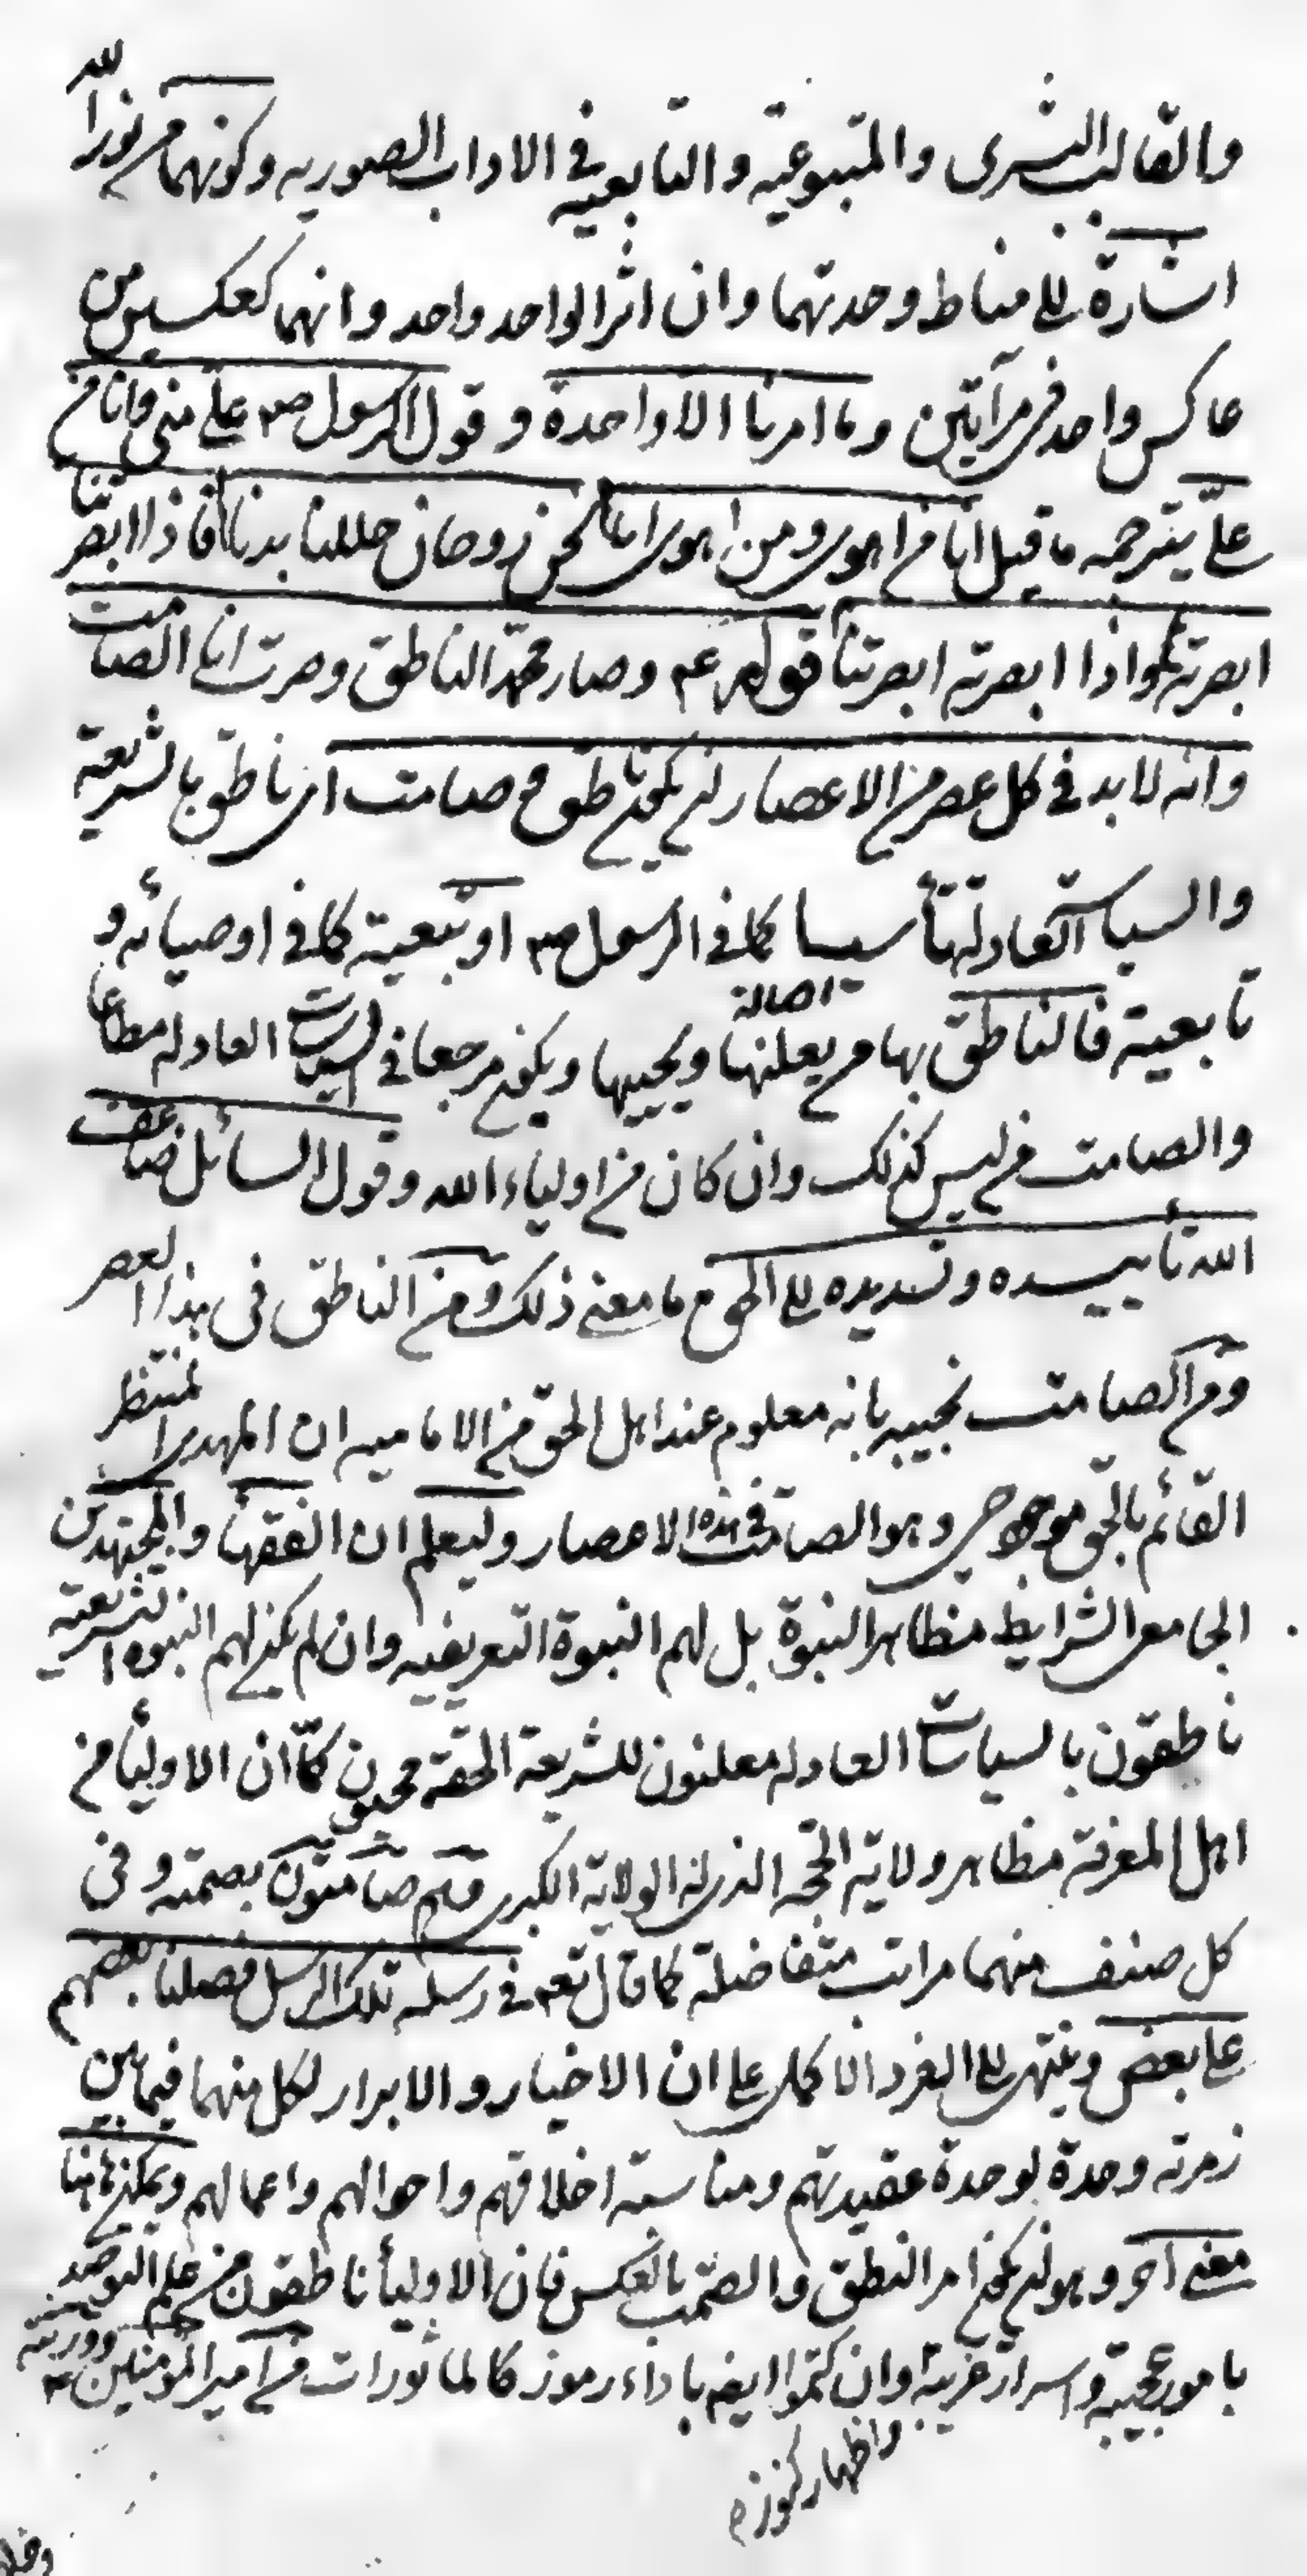 والقالب البشرى والمتبوعية والتابعيه فى الاداب الصوريه وكونهما من نور الله
اشارة الى مناط وحدتهما وان اثر الواحد واحد وانهما كعكسين من
عاكس واحد فى مرآتين وما امرنا الا واحدة و قول الرسول ص علىّ منى وانا من
علىّ يترجمه ما قيل انا من اهوى ومن اهوى انا نحن روحان حللنا بدنا فاذا ابصرتنا
ابصرته واذا ابصرته ابصرتنا قوله ع وصار محمّد الناطق وصرت انا الصامت
وانه لا بد فى كل عصر من الاعصار ان يكون ناطق وصامت اى ناطق بالشريعة
والسياسات العادلة تأسيسا كما فى الرسول ص او تبعية كما فى اوصيائه و
تابعية فالناطق بها من يعلنها ويحييها ويكون مرجعا فى السياسات العادله مطاعا اصالة
والصامت من ليس كذلك وان كان من اولياء الله وقول السائل ضاعف
الله تأييده وتسديده الى الحق ما معنى ذلك ومن الناطق فى هذا العصر
ومن الصامت نجيب بانه معلوم عند اهل الحق من الاماميه ان المهدى المنتظر
القائم بالحق موجود حى وهو الصامت فى هذه الاعصار وليعلم ان الفقهأ والمجتهدين
الجامعى الشرايط مظاهر النبوة بل لهم النبوة التعريفيه وان لم يكن لهم النبوه التشريعيه
ناطقون بالسياسات العادله معلنون للشريعة الحقة محيون كما ان الاوليأ من
اهل المعرفة مظاهر ولاية الحجة الذى له الولاية الكبرى فهم صامتون بصمته و فى
كل صنف منهما مراتب متفاضلة كما قال تعالى فى رسله تلك الرسل فضلنا بعضهم
على بعض وينتهى الى الفرد الاكمل على ان الاخيار والابرار لكل منهما فيما بين
زمرته وحدة لوحدة عقيدتهم ومناسبة اخلاقهم واحوالهم واعمالهم ويمكن هاهنا
معنى آخر وهو ان يكون امر النطق والصمت بالعكس فان الاوليأ ناطقون من علم التوحيد
بامور عجيبة واسرار غريبة وان كتموا ايضا باداء رموز كالماثورات من امير المؤمنين ع وورثته
واظهار كنوز م